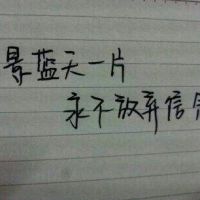 景蓝天一片
永不放弃信